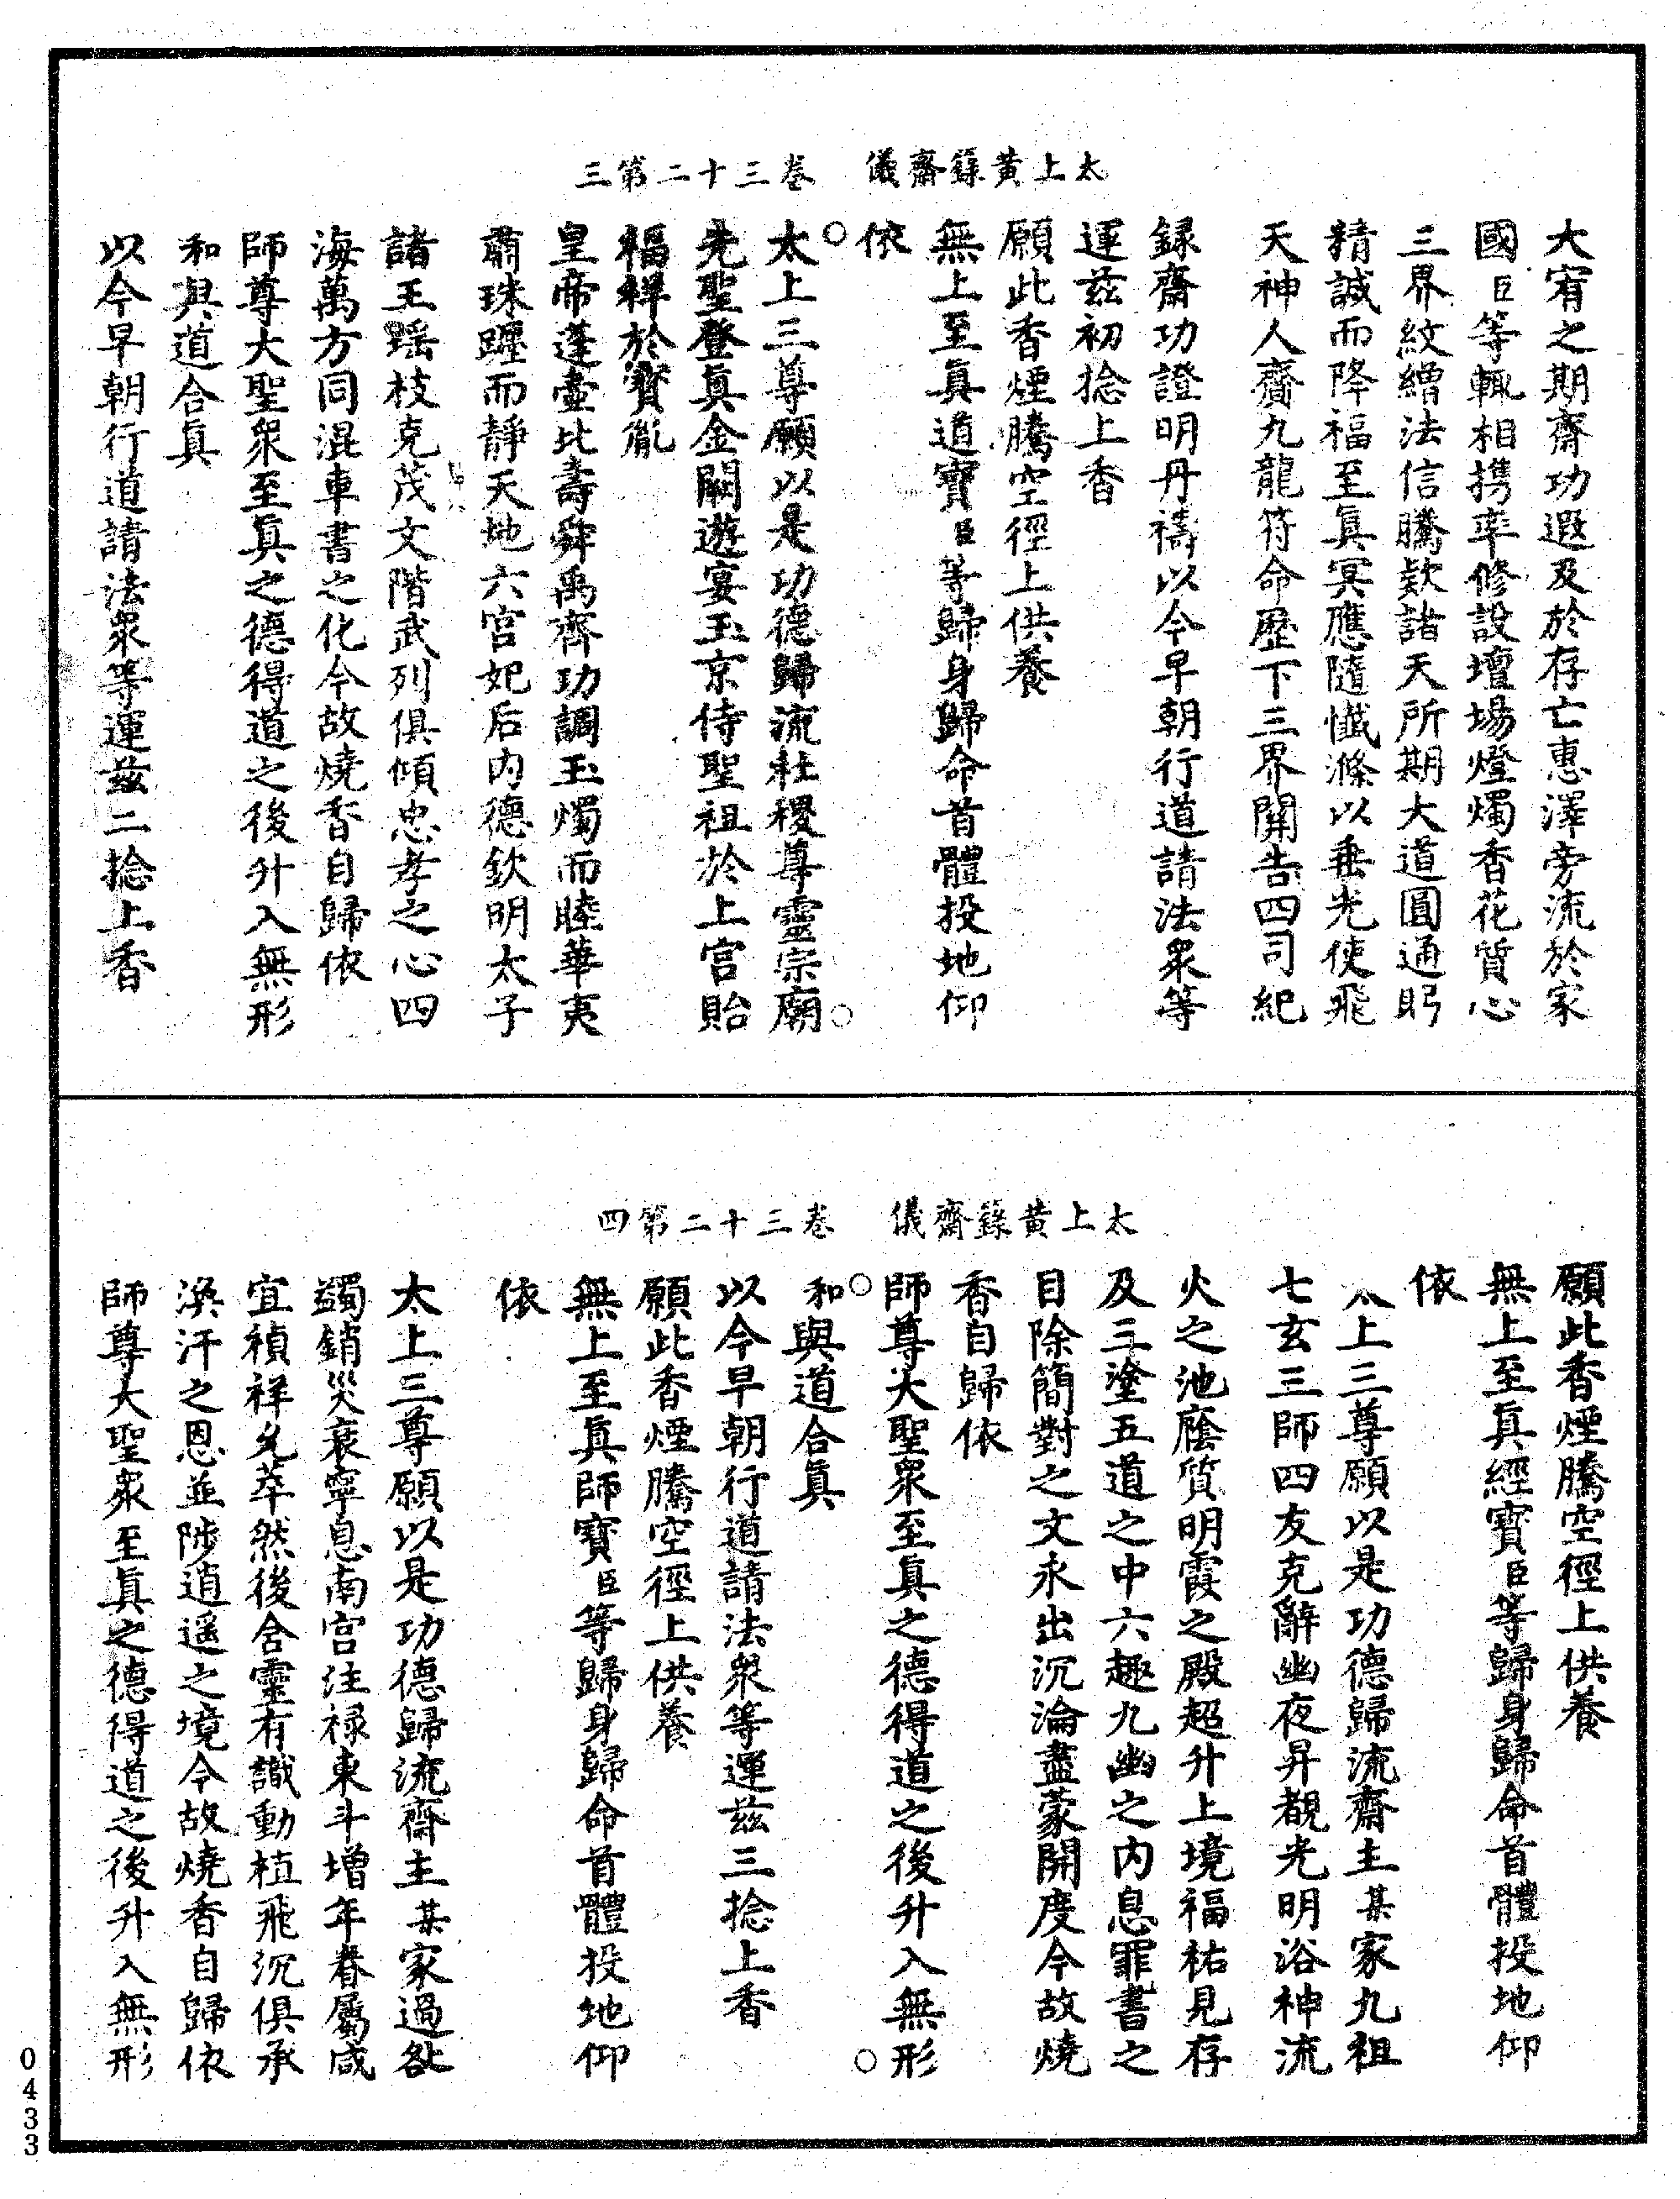 太上黃籙齋儀　卷三十二第三
大宥之期齋功遐及於存亡惠澤旁流於家
國臣等輒相携率修設壇場燈燭香花質心
三界紋繒法信騰欵諸天所期大道圓通眄
精誠而降福至真冥應隨懺滌以垂光使飛
天神人齎九龍符命歷下三界開告四司紀
録齋功證明丹禱以今早朝行道請法衆等
運兹初捻上香
願此香煙騰空徑上供養
無上至真道寳臣等歸身歸命首體投地仰
依
太上三尊願以是功德歸流社稷尊靈宗廟
先聖登真金闕遊宴玉京侍聖祖於上宫貽
福祥於寳胤
皇帝蓬壷比壽舜禹齊功調玉燭而睦華夷
肅珠躔而靜天地六宫妃后内德欽明太子
諸王瑶枝克茂文階武列俱傾忠孝之心四
海萬方同混車書之化今故燒香自歸依
師尊大聖衆至真之德得道之後升入無形
和與道合真
以今早朝行道請法衆等運兹二捻上香
太上黃籙齋儀　卷三十二第四
願此香煙騰空徑上供養
無上至真經寳臣等歸身歸命首體投地仰
依
太上三尊願以是功德歸流齋主某家九祖
七玄三師四友克辭幽夜昇覩光明浴神流
火之池䕃質明霞之殿超升上境福祐見存
及三塗五道之中六趣九幽之内息罪書之
目除簡對之文永出沉淪盡蒙開度今故燒
香自歸依
師尊大聖衆至真之德得道之後升入無形
和與道合真
以今早朝行道請法衆等運兹三捻上香
願此香煙騰空徑上供養
無上至真師寳臣等歸身歸命首體投地仰
依
太上三尊願以是功德歸流齋主某家過咎
蠲銷災衰寧息南宫注禄東斗增年眷屬咸
宜禎祥允萃然後含靈有識動植飛沉俱承
渙汗之恩並陟逍遥之境今故燒香自歸依
師尊大聖衆至真之德得道之後升入無形
0433